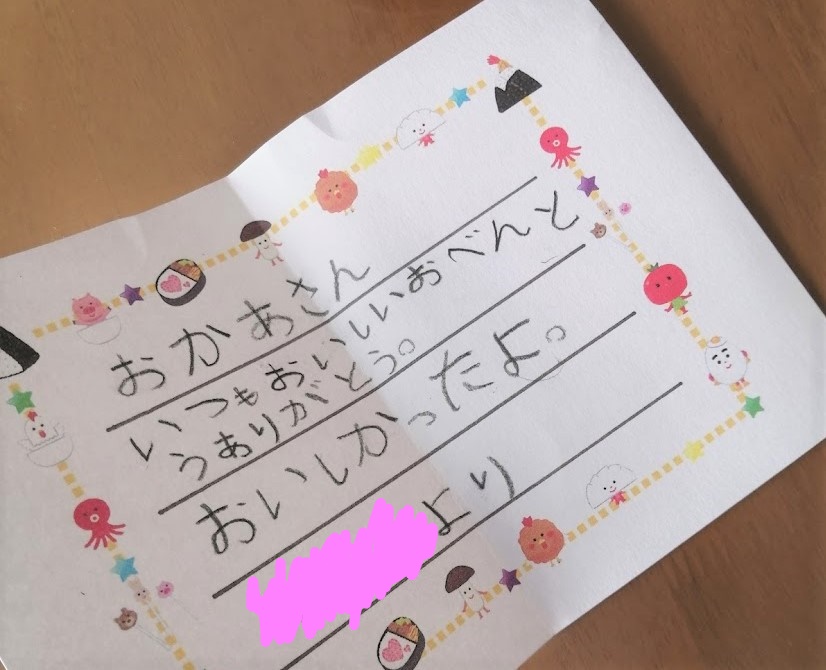 おかあさん
いつもおいしいおべんと
うありがとう。
おいしかったよ。
より